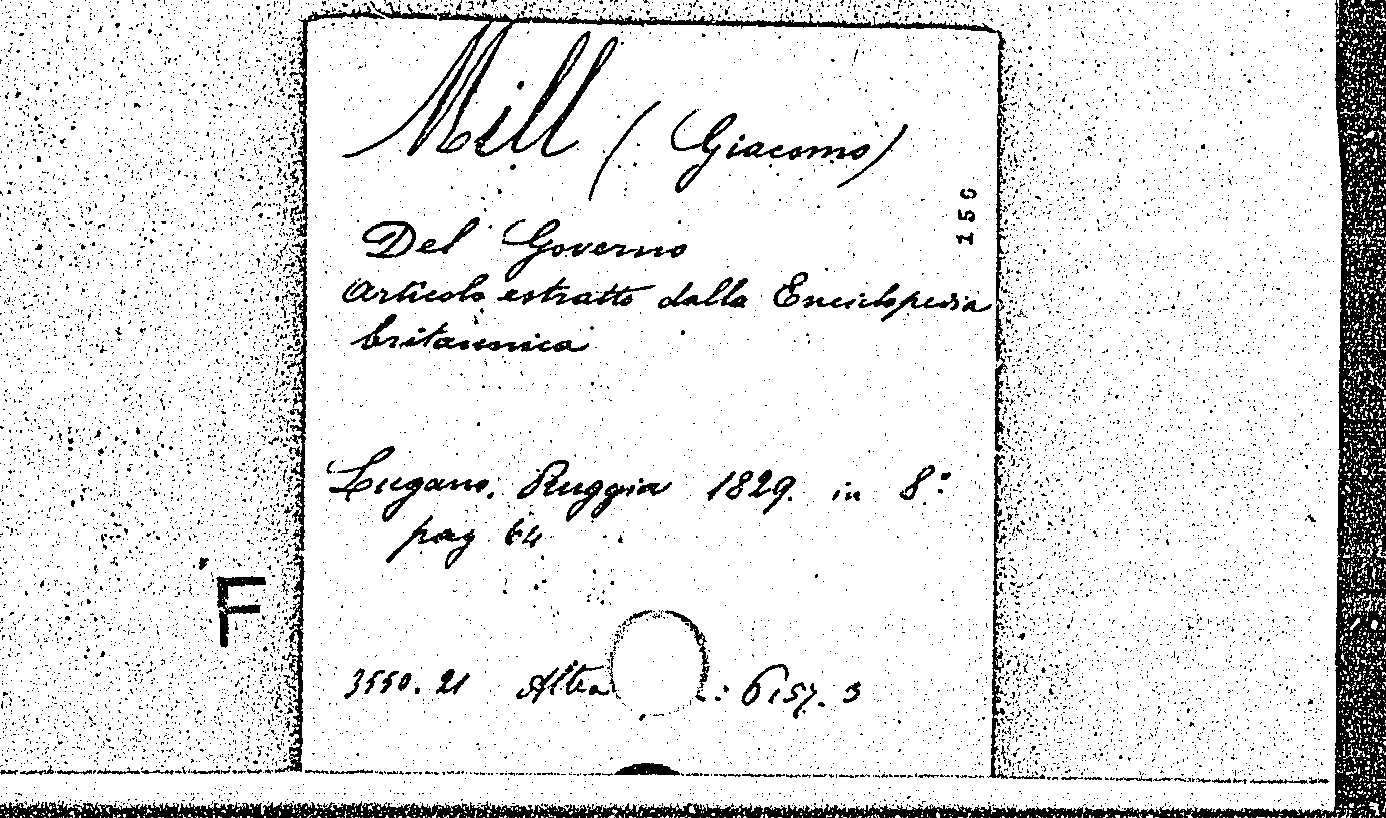 Mill (Giacomo)
150
Del Governo
Articolo estratto dalla Enciclopedia
britannica
Lugano. Ruggia 1829. in 8.°
pag 64
F
3550.21 Altra : 6157.3